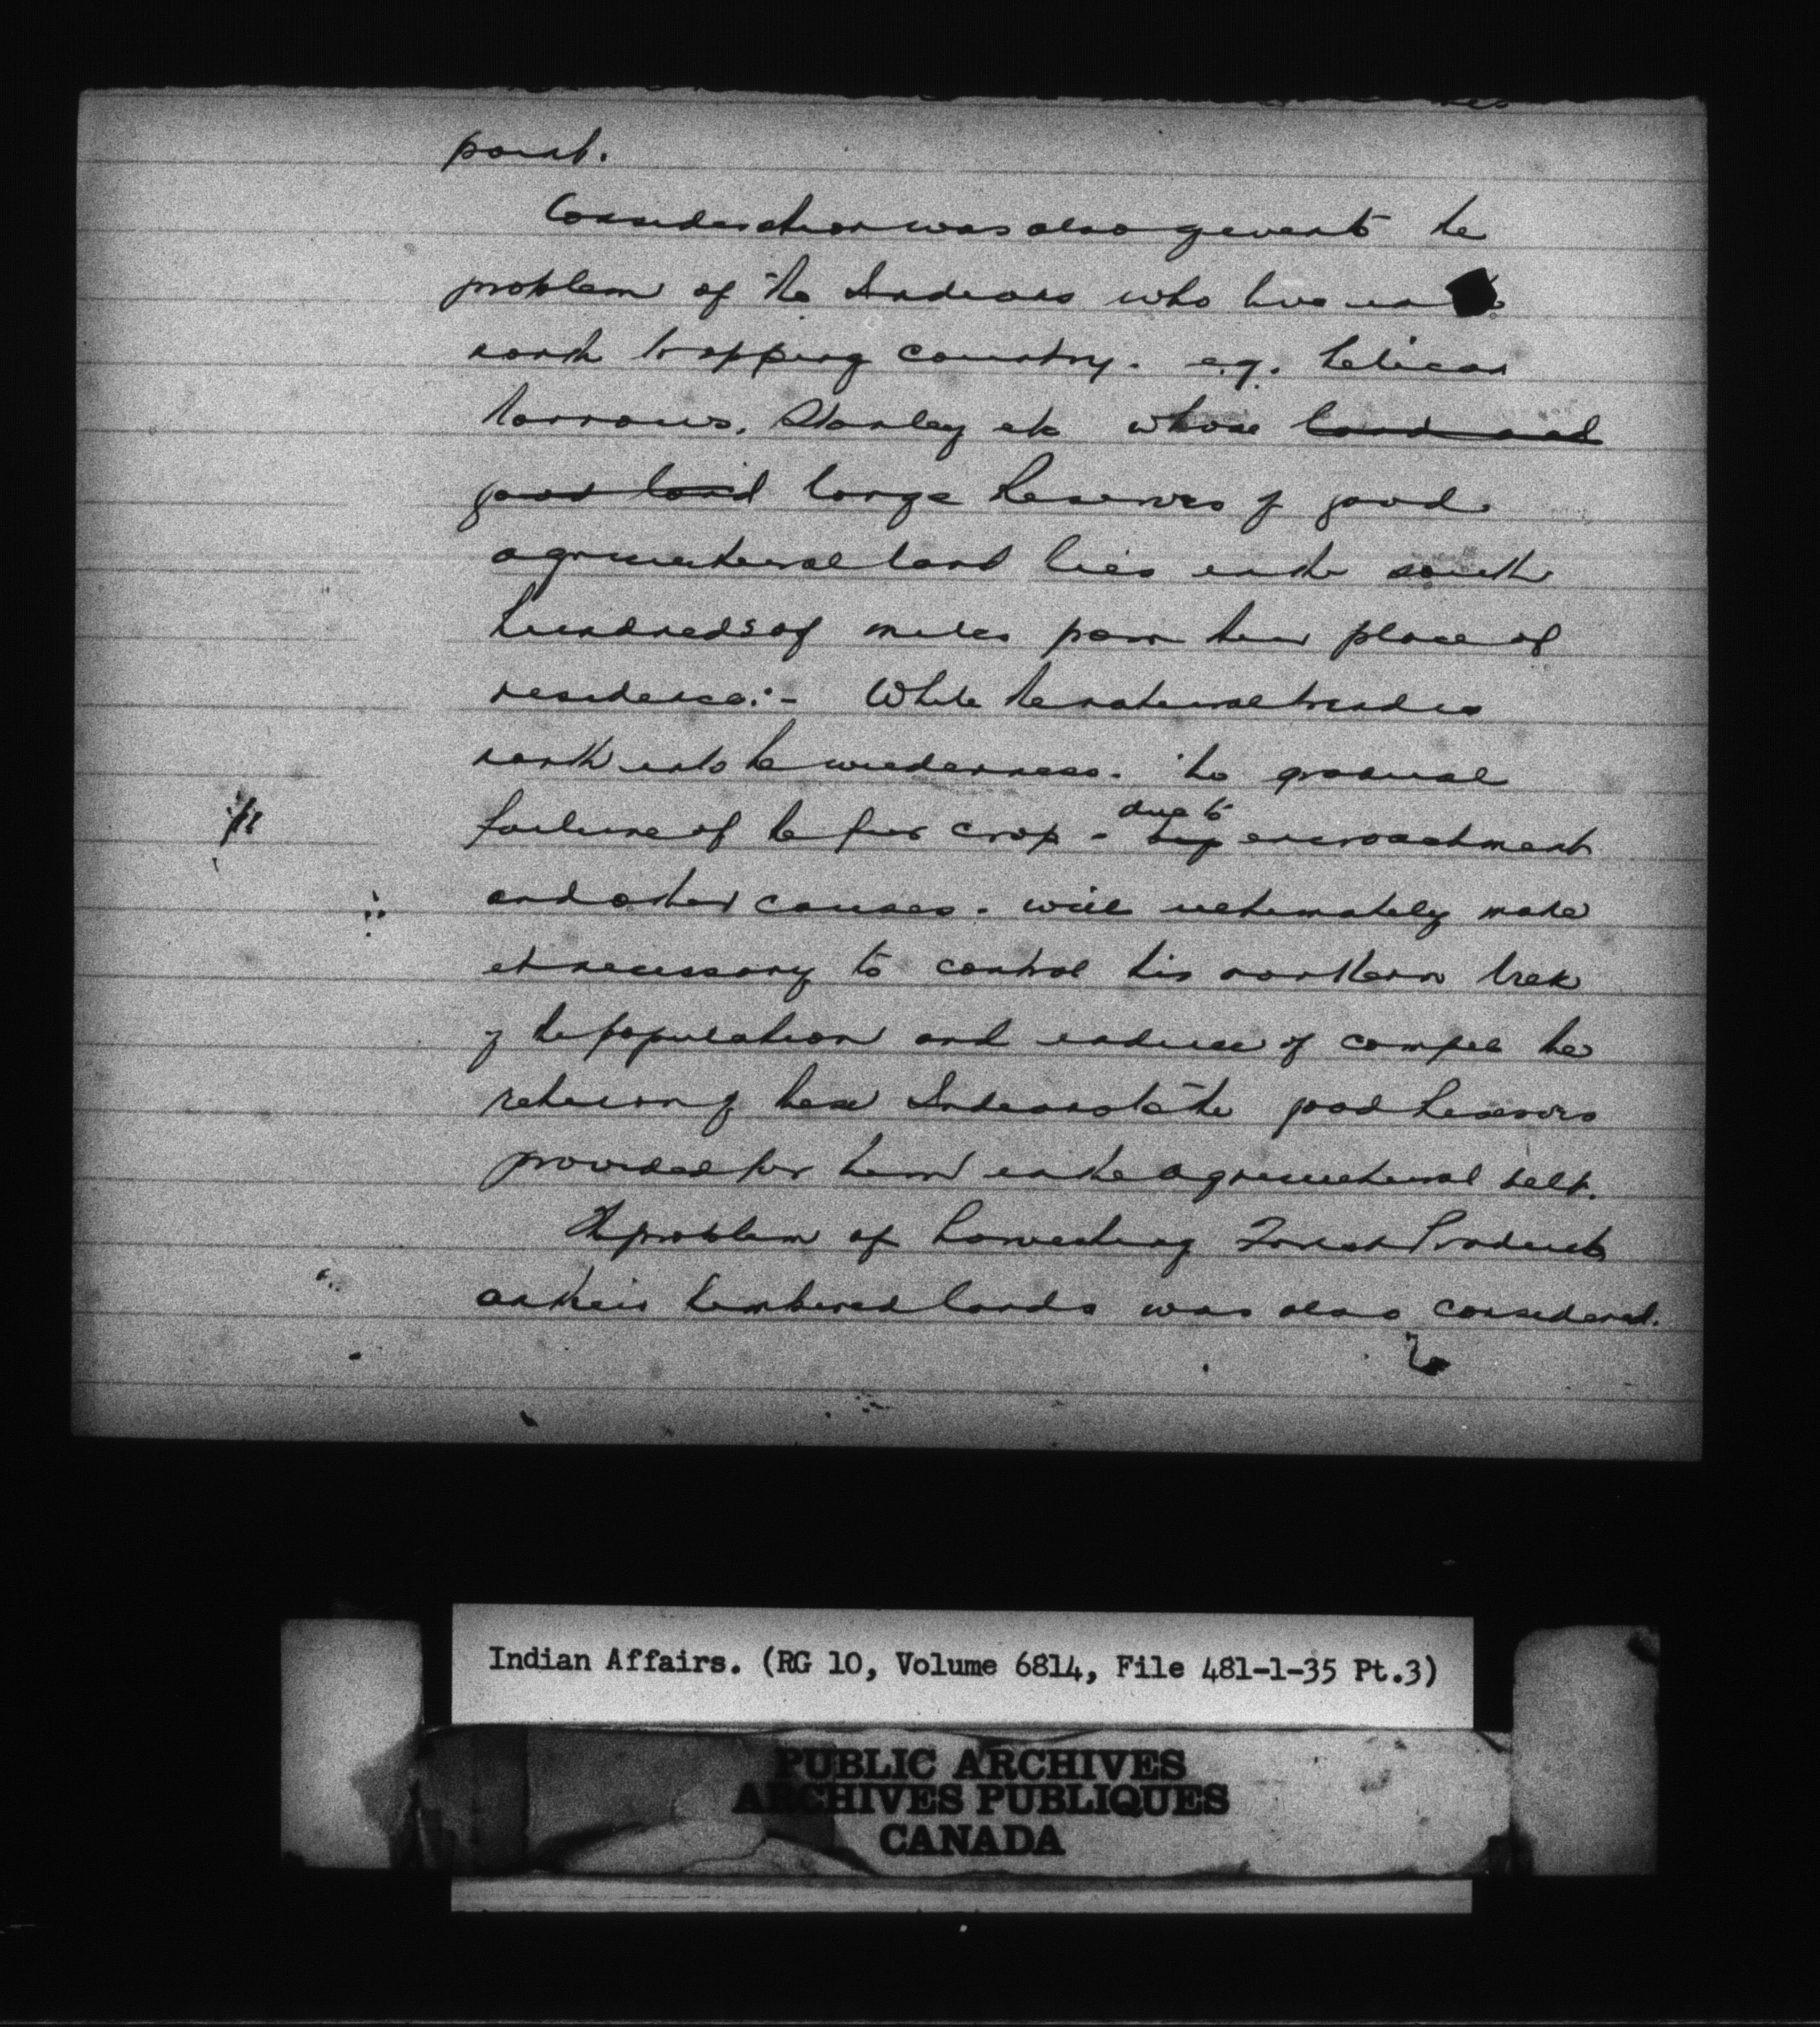 point.
Consideration was also given to the
problem of the Indians who live in
north trapping country. e.g. Pelican
Narrows, Stanley etc whose land and
good land large Reserves of good
agricultural land lies in the south
hundreds of miles from their place of
residence:- While the natural trend is
north into the wilderness. the gradual
failure of the fur crop - due to
by encroachment
and other causes - will ultimately make
it necessary to control this northern trek
of the population and induce of compel the
return of these Indians to the good Reserves
provided for them in the agricultural belt.
The problem of harvesting Forest Products
on their timbered lands was also considered.
Indian Affairs. (RG 10, Volume 6814, File 481-1-35 Pt.3)
PUBLIC ARCHIVES
ARCHIVES PUBLIQUES
CANADA